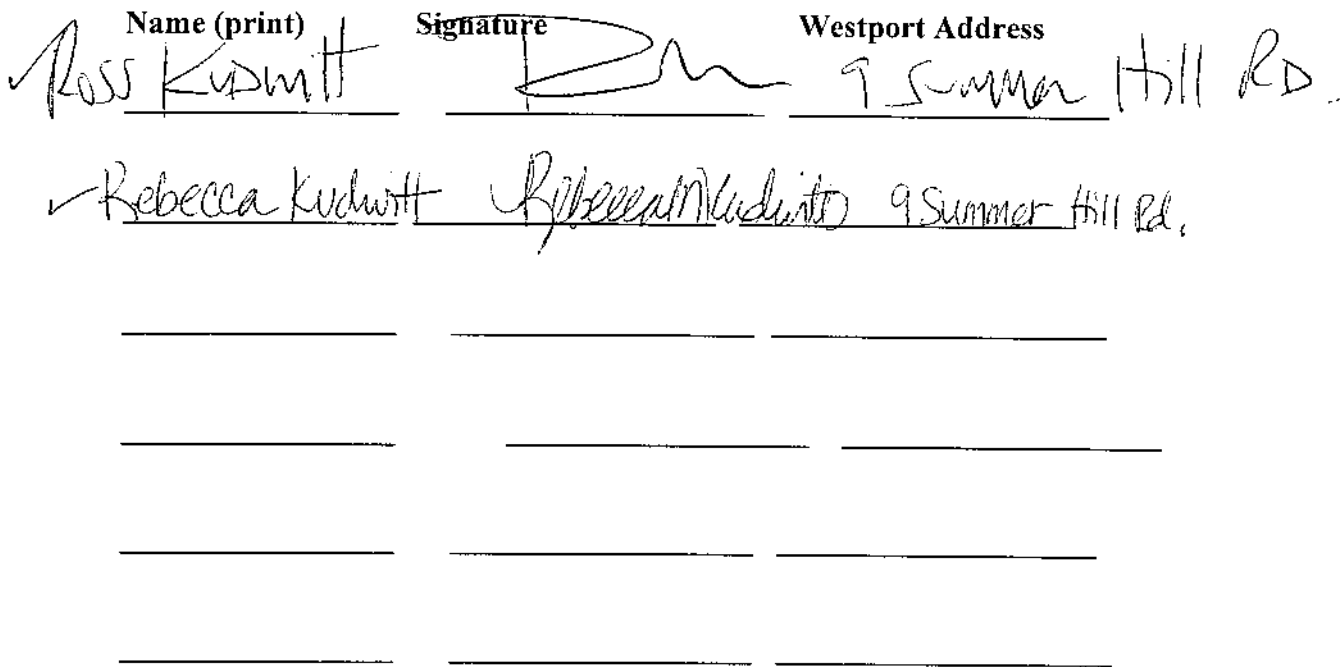 Name (print) Signature Westport Address
Ross Kudwitt 9 Summer Hill RD.
Rebecca Kudwitt Rebecca M Kudwitt 9 Summer Hill Rd.